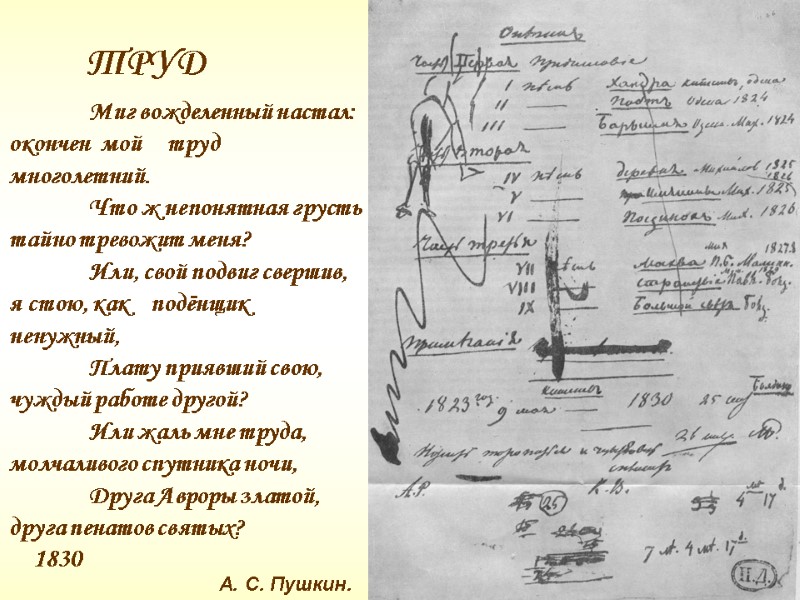 ТРУД
Миг вожделенный настал:
окончен мой труд
многолетний.
Что ж непонятная грусть
тайно тревожит меня?
Или, свой подвиг свершив,
я стою, как подёнщик
ненужный,
Плату приявший свою,
чуждый работе другой?
Или жаль мне труда,
молчаливого спутника ночи,
Друга Авроры златой,
друга пенатов святых?
1830
А. С. Пушкин.
Онѣгинъ
Часть Первая Предисловіе
I пѣснь Хандра Кишеневъ, Одесса
II Поэтъ Одесса 1824
III Барышня Одесса. Мих. 1824
Часть Вторая
IV пѣснь Деревня Михайлов 1825
1826
V Имянины Мих. 1825
VI Поединокъ Мих. 1826
Часть третья
VII пѣснь Москва П.Б. Малинн. 1827.8
VIII Странствіе Болд.
IX Большой свѣтъ Болд.
Примѣчанія
Кишеневъ Болдино
1823 год 9 мая 1830 25 сен
26 сен
и
А.Р. К.В.
25 4 17
7 л. 4 м. 17 д.
П.Д.